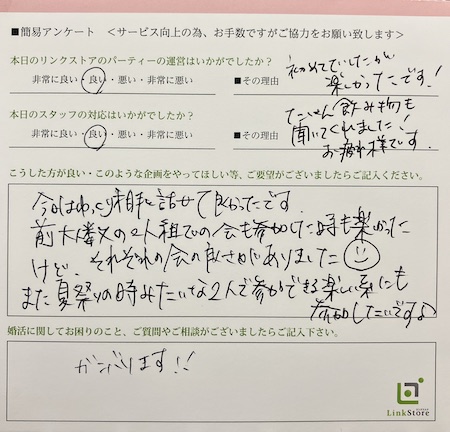 ■簡易アンケート　＜サービス向上の為、お手数ですがご協力をお願い致します＞
本日のリンクストアのパーティーの運営はいかがでしたか？
非常に良い・良い・悪い・非常に悪い
■その理由
初めてでしたが
楽しかったです!
本日のスタッフの対応はいかがでしたか？
非常に良い・良い・悪い・非常に悪い
■その理由
たくさん飲み物も
聞いてくれました!
お疲れ様です.
こうした方が良い・このような企画をやってほしい等、ご要望がございましたらご記入ください。
今回はゆっくり相手と話せて良かったです.
前大勢の2人組での会も参加した時も楽しかった
けど、それぞれの会の良さがありました
また夏祭りの時みたいな2人で参加できる楽しい系にも
参加したいです
婚活に関してお困りのこと、ご質問やご相談がございましたらご記入下さい。
ガンバります!!
LinkStore